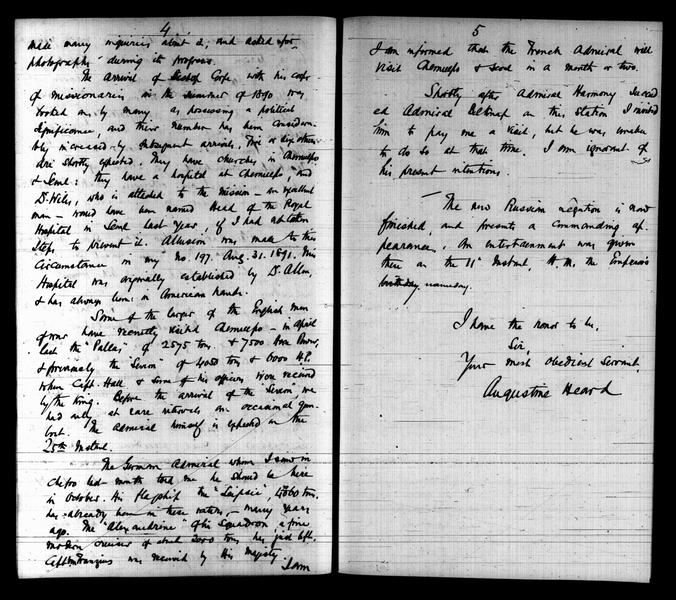 4
made many inquiries about it, and asked for
photographs during its progress.
The arrival of Bishop Corfe with his corps
of missionaries in the summer of 1890 was
looked on by many as possessing a political
significance, and their number has been considera-
bly increased by subsequent arrivals. Five or six others
are shortly expected. They have churches in Chemulpo
& Seoul: they have a hospital at Chemulpo, and
Dr. Wiles, who is attached to the mission – an excellent
man – would have been named Head of the Royal
Hospital in Seoul last year, if I had not taken
steps to prevent it. Allusion was made to this
circumstance in my No. 197. Aug. 31. 1891. This
Hospital was originally established by Dr. Allen,
& has always been in American hands.
Some of the larger of the English men
of war have recently visited Chemulpo – in April
last the "Pallas" of 2575 tons & 7500 Horse Power,
& previously the "Severn" of 4050 tons & 6000 H.P.
when Capt. Hall & some of his officers were received
by the King. Before the arrival of the "Severn", we
had only at rare intervals an occasional gun
boat. The Admiral himself is expected on the
25th Instant.
The German Admiral whom I saw in
Chefoo last month told me he should be here
in October. His flagship the "Leipsic", 4000 tons.
has already been in these waters, many years
ago. The "Alexandrine" of his Squadron, a fine
modern cruiser of about 2000 tons has just left.
Captain was received by His Majesty.
I am
5
I am informed that the French Admiral will
visit Chemulpo & Seoul in a month or two.
Shortly after Admiral Harmony succeed
ed Admiral Belknap on this station I invited
him to pay me a visit, but he was unable
to do so at that time. I am ignorant of
his present intentions.
The new Russian Legation is now
finished, and presents a commanding ap-
pearance. An entertainment was given
there on the 11th Instant, H. M. the Emperor's
birthday nameday.
I have the honor to be,
Sir,
Your most obedient Servant,
Augustine Heard